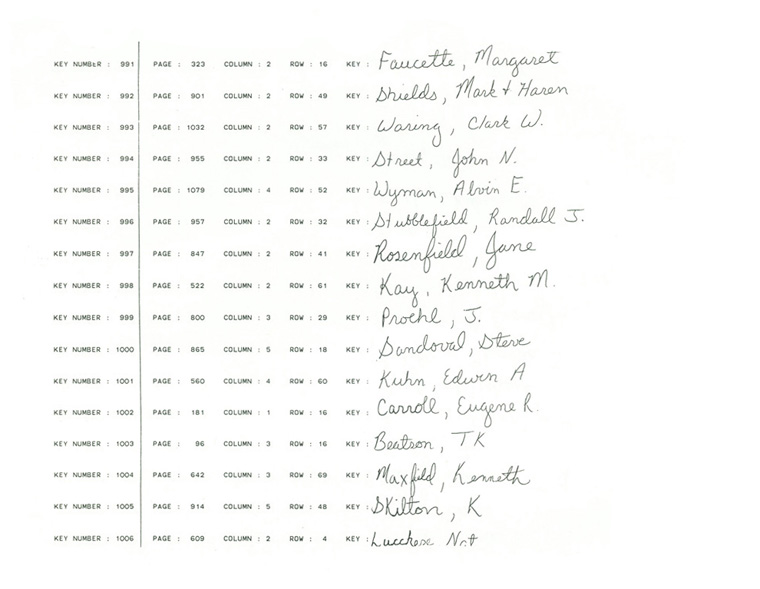 KEY NUMBER : 991 PAGE : 323 COLUMN : 2 ROW : 16 KEY : Faucette, Margaret
KEY NUMBER : 992 PAGE : 901 COLUMN : 2 ROW : 49 KEY : Shields, Mark + Haren
KEY NUMBER : 993 PAGE : 1032 COLUMN : 2 ROW : 57 KEY : Waring, Clark W.
KEY NUMBER : 994 PAGE : 955 COLUMN : 2 ROW : 33 KEY : Street, John N.
KEY NUMBER : 995 PAGE : 1079 COLUMN : 4 ROW : 52 KEY : Wyman, Alvin E.
KEY NUMBER : 996 PAGE : 957 COLUMN : 2 ROW : 32 KEY : Stubblefield, Randall J.
KEY NUMBER : 997 PAGE : 847 COLUMN : 2 ROW : 41 KEY : Rosenfield, Jane
KEY NUMBER : 998 PAGE : 522 COLUMN : 2 ROW : 61 KEY : Kay, Kenneth M.
KEY NUMBER : 999 PAGE : 800 COLUMN : 3 ROW : 29 KEY : Proehl, J.
KEY NUMBER : 1000 PAGE : 865 COLUMN : 5 ROW : 18 KEY : Sandoval, Steve
KEY NUMBER : 1001 PAGE : 560 COLUMN : 4 ROW : 60 KEY : Kuhn, Edwin A
KEY NUMBER : 1002 PAGE : 181 COLUMN : 1 ROW : 16 KEY : Carroll, Eugene R.
KEY NUMBER : 1003 PAGE : 96 COLUMN : 3 ROW : 16 KEY : Beatson, TK
KEY NUMBER : 1004 PAGE : 642 COLUMN : 3 ROW : 69 KEY : Maxfield, Kenneth
KEY NUMBER : 1005 PAGE : 914 COLUMN : 5 ROW : 48 KEY : Skilton, K
KEY NUMBER : 1006 PAGE : 609 COLUMN : 2 ROW : 4 KEY : Lucchese Nat